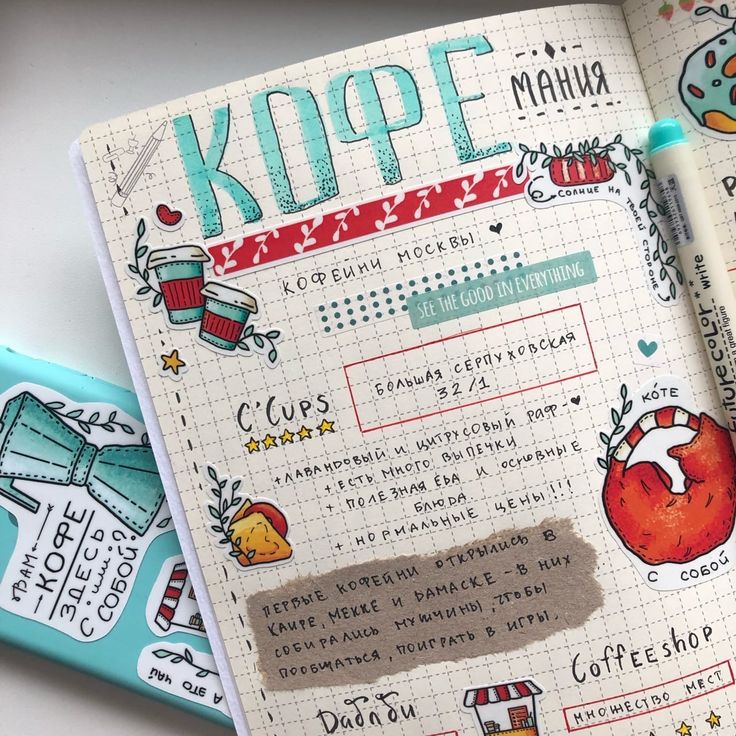 КОФЕ
МАНИЯ
СОЛНЦЕ НА
ТВОЕЙ СТОРОНЕ
КОФЕЙНИ МОСКВЫ
SEE THE GOOD IN EVERYTHING
БОЛЬШАЯ СЕРПУХОВСКАЯ
32/1
C'CUPS
+ЛАВАНДОВЫЙ И ЦИТРУСОВЫЙ РАФ-
+ ЕСТЬ МНОГО ВЫПЕЧКИ
+ ПОЛЕЗНАЯ ЕДА И ОСНОВНЫЕ
БЛЮДА
+ НОРМАЛЬНЫЕ ЦЕНЫ!!!
КОТЕ
С СОБОЙ
ПЕРВЫЕ КОФЕЙНИ ОТКРЫЛИСЬ В
КАИРЕ, МЕККЕ И ДАМАСКЕ - В НИХ
СОБИРАЛИСЬ МУЖЧИНЫ, ЧТОБЫ
ПООБЩАТЬСЯ, ПОИГРАТЬ В ИГРЫ.
Даблби
Coffeeshop
МНОЖЕСТВО МЕСТ
ВАМ
КОФЕ
ЗДЕСЬ
или
С СОБОЙ?
А ЭТО ЧАЙ
Futurecolor** write